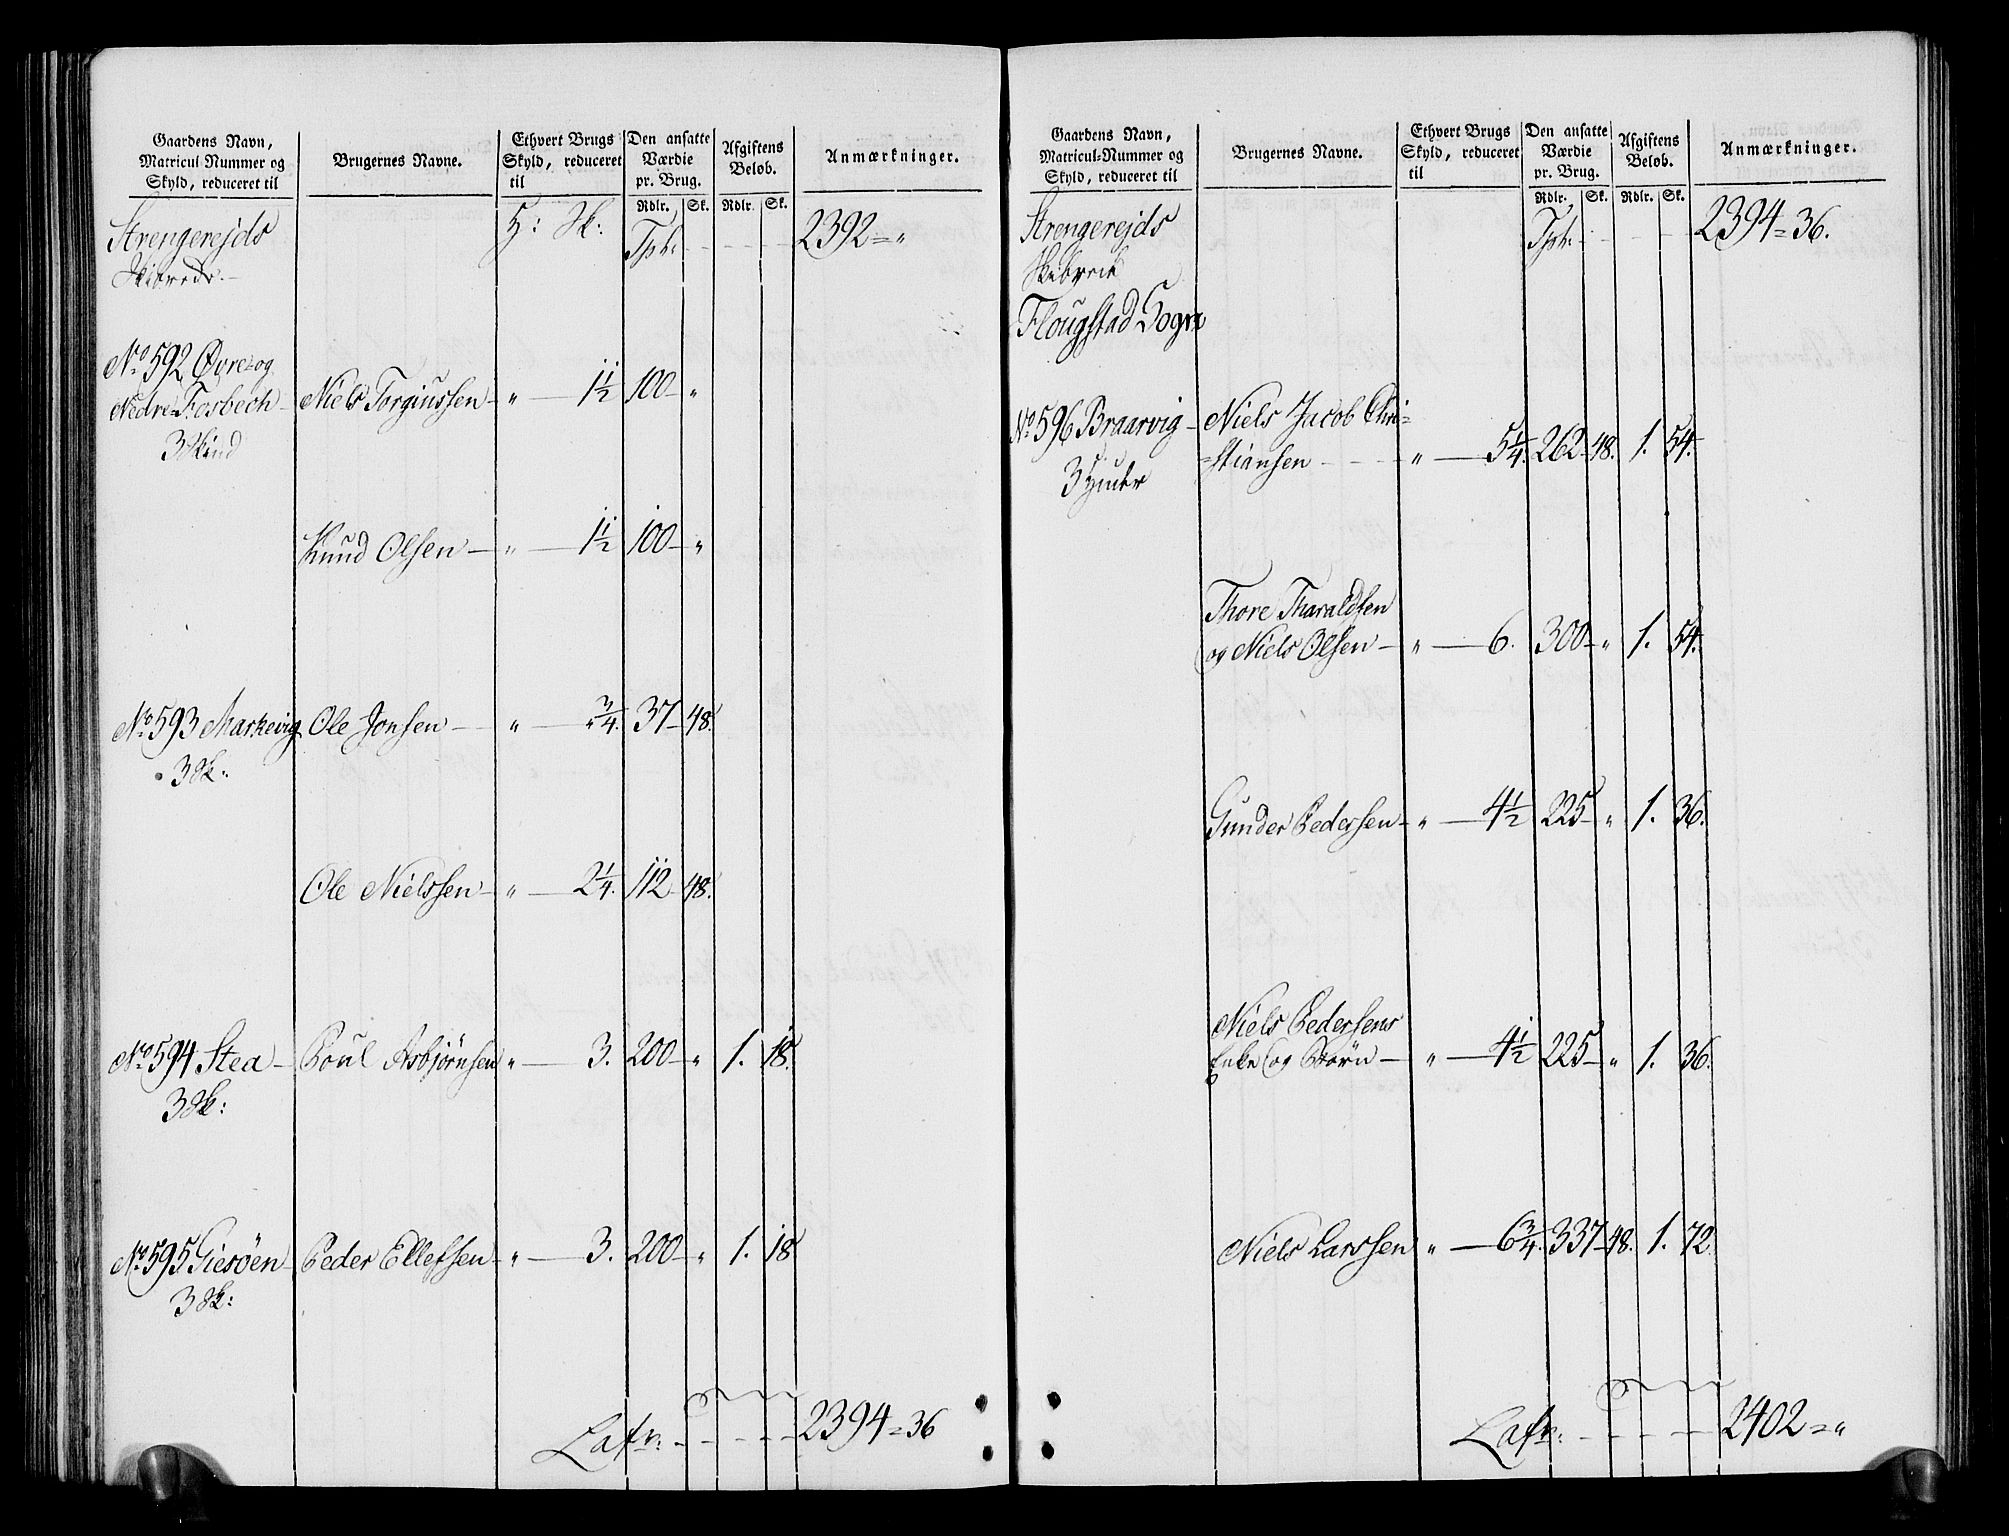 Gaardens Navn,
Matricul-Nummer og
Skyld, reduceret til
Brugernes Navne.
Ethvert Brugs
Skyld, reduceret
til
Den ansatte
Værdie
pr. Brug.
Afgiftens
Beløb.
Anmærkninger.
Rdlr. Sk. Rdlr. Sk.
Strengerejds H: Sk: Tph: - - - - 2392 = "
Skibrede.
No 592 Øvre og
Nedre Fosbech Niels Torgiussen " 1 1/2 100 "
3 Skind
Knud Olsen " 1 1/2 100 "
No 593 Markevig Ole Jonsen " " 3/4. 37 48.
3 Sk:
Ole Nielssen " 2 1/4. 112 48.
No 594 Stea Poul Asbjørnsen " 3. 200 " 1. 18.
3 Sk:
No 595 Giesøen Peder Ellefsen " 3. 200 " 1. 18
3 Sk:
Lafr: - - - - 2394 = 36
Gaardens Navn,
Matricul-Nummer og
Skyld, reduceret til
Brugernes Navne.
Ethvert Brugs
Skyld, reduceret
til
Den ansatte
Værdie
pr. Brug.
Afgiftens
Beløb.
Anmærkninger.
Rdlr. Sk. Rdlr. Sk.
Strengerejds Tph: - - - - 2394 = 36.
Skibrede
Flougstad Sogn
No 596 Braarvig Niels Jacob Chri=
3 Huder =stiansen " 5 1/4. 262 48. 1. 54.
Thore Tharaldsen
og Niels Olsen " 6. 300 " 1. 54.
Gunder Pedersen " 4 1/2 225 " 1. 36.
Niels Pedersens
Enke og Børn " 4 1/2 225 " 1. 36.
Niels Larssen " 6 3/4. 337 48. 1. 72.
Lafr: - - - - 2402 = "